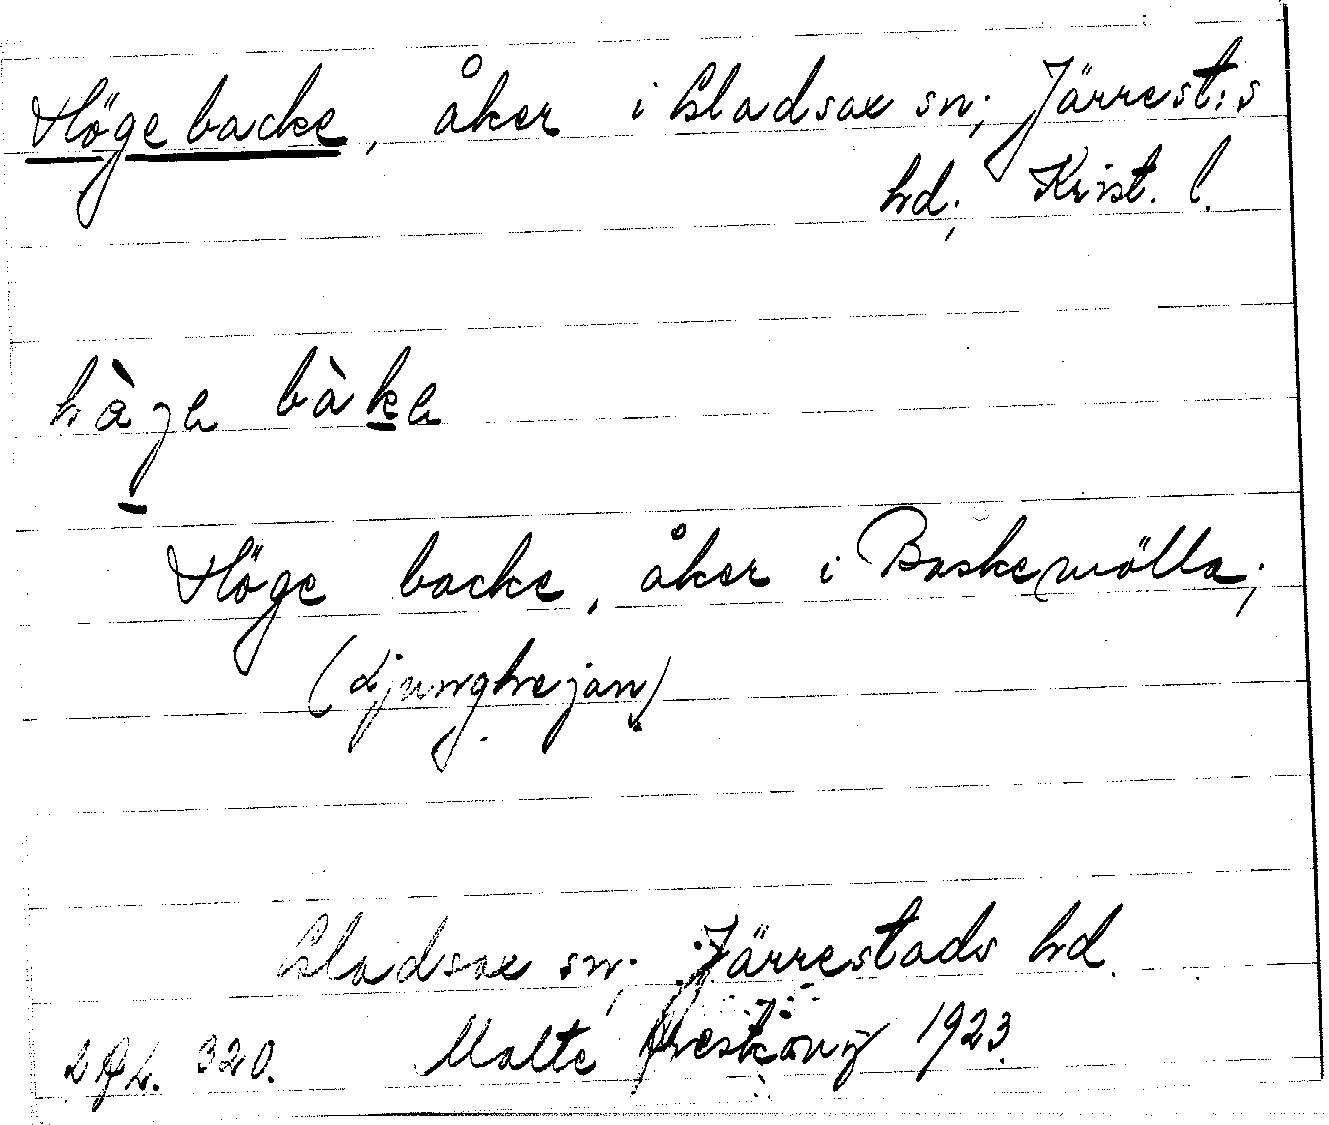 Högebacke, åker i Gladsax sn; Järrest:s
hd; Krist. l.
hàge bàke
Höge backe, åker i Baskemölla;
(Ljunghejan)
Gladsax sn; Järrestads hd.
320. Malte 1923.